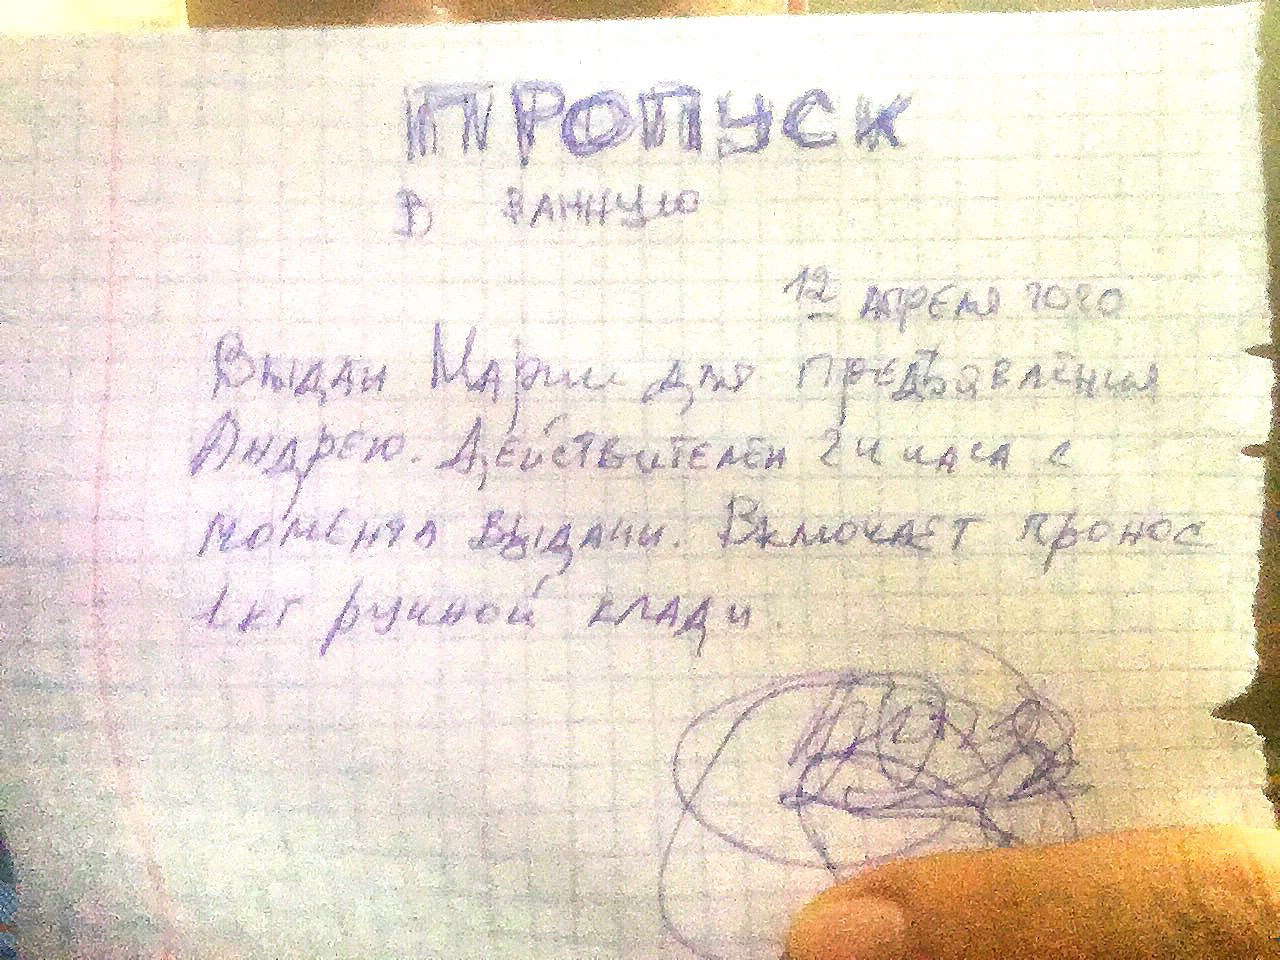 ПРОПУСК
В ВАННУЮ
12 АПРЕЛЯ 2020
Выдан Марии для предъявления
Андрею. Действителен 24 часа с
момента выдачи. Включает пронос
1 кг ручной клади.